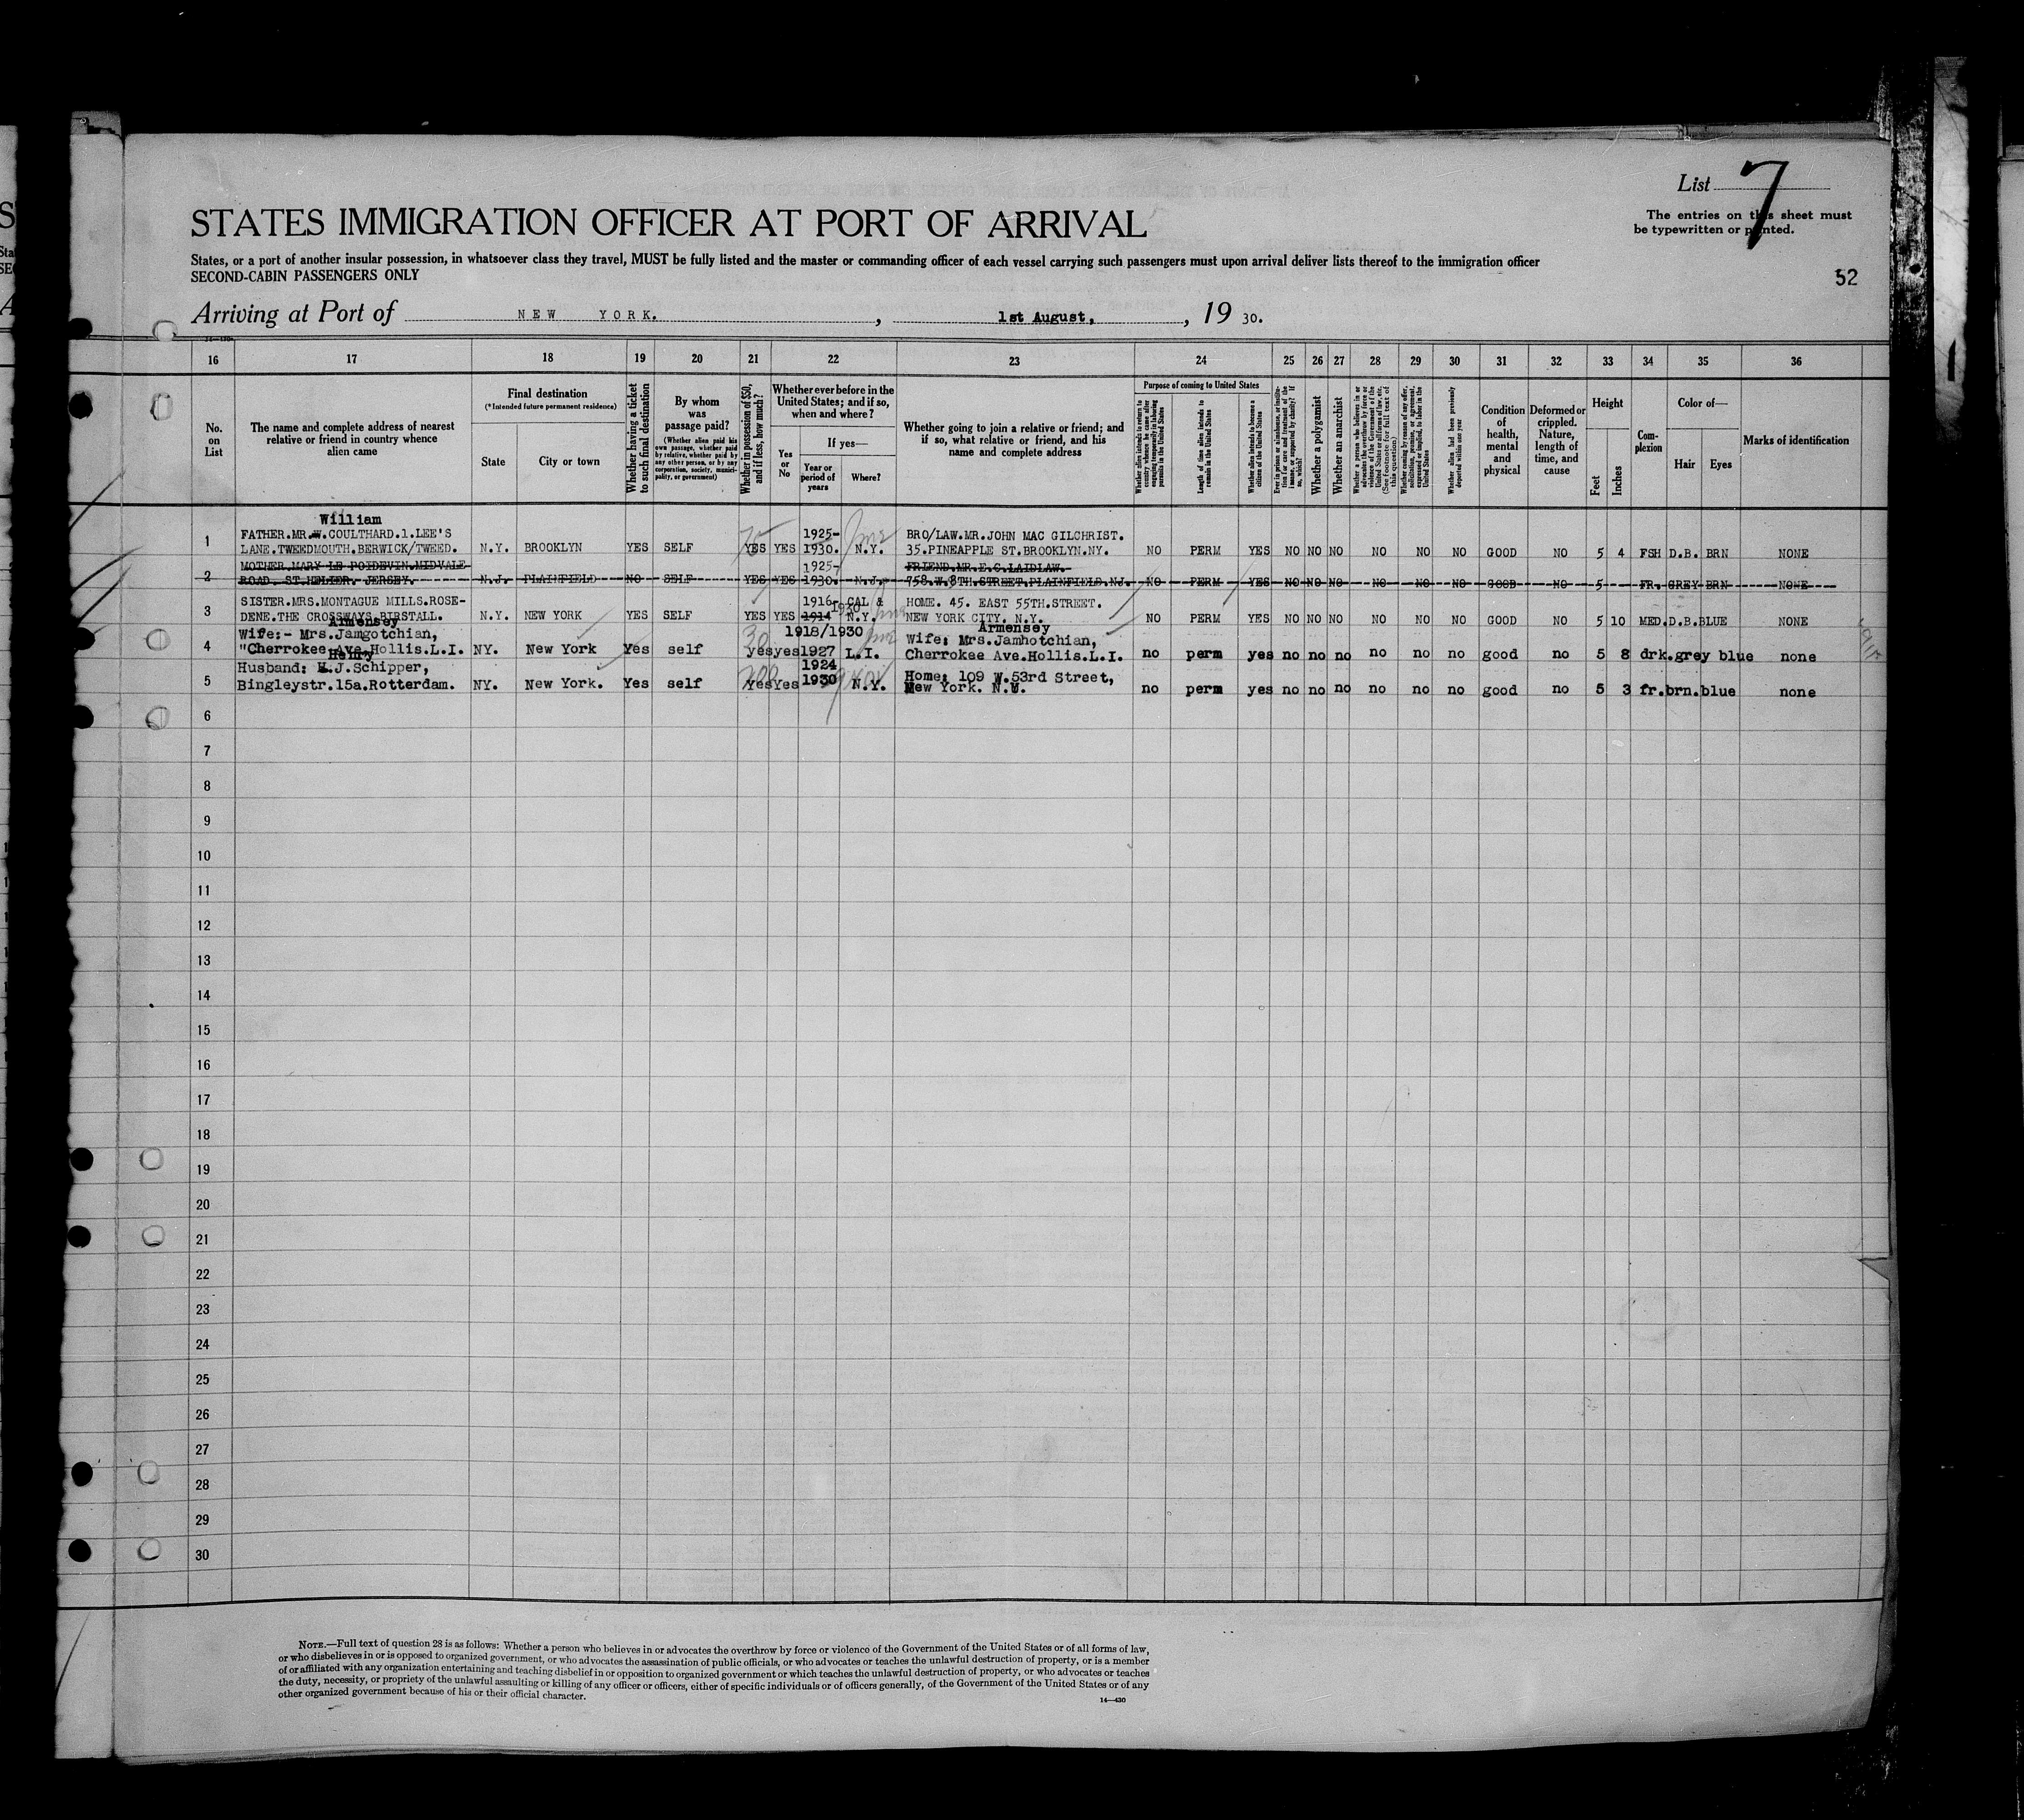 List 7
STATES IMMIGRATION OFFICER AT PORT OF ARRIVAL
The entries on this sheet must
be typewritten or printed.
States, or a port of another insular possession, in whatsoever class they travel, MUST be fully listed and the master or commanding officer of each vessel carrying such passengers must upon arrival deliver lists thereof to the immigration officer
SECOND-CABIN PASSENGERS ONLY
52
Arriving at Port of NEW YORK. , 1st August, , 19 30.
16 17 18 19 20 21 22 23 24 25 26 27 28 29 30 31 32 33 34 35 36
No. on List
The name and complete address of nearest relative or friend in country whence alien came
Final destination
(*Intended future permanent residence)
State
City or town
Whether having a ticket to such final destination
By whom was passage paid?
(Whether alien paid his own passage, whether paid by relative, whether paid by any other person, or by any corporation, society, municipality, or government)
Whether in possession of $50, and if less, how much?
Whether ever before in the United States; and if so, when and where?
Yes or No
If yes—
Year or period of years
Where?
Whether going to join a relative or friend; and if so, what relative or friend, and his name and complete address
Purpose of coming to United States
Whether alien intends to return to country whence he came after engaging temporarily in laboring pursuits in the United States
Length of time alien intends to remain in the United States
Whether alien intends to become a citizen of the United States
Ever in prison or almshouse, or institution for care and treatment of the insane, or supported by charity? If so, which?
Whether a polygamist
Whether an anarchist
Whether a person who believes in or advocates the overthrow by force or violence of the Government of the United States or all forms of law, etc. (See footnote for full text of this question)
Whether coming by reason of any offer, solicitation, promise, or agreement, expressed or implied, to labor in the United States
Whether alien had been previously deported within one year
Condition of health, mental and physical
Deformed or crippled. Nature, length of time, and cause
Height
Feet
Inches
Complexion
Color of—
Hair
Eyes
Marks of identification
William
1 FATHER.MR.W.COULTHARD.1.LEE'S 1925- BRO/LAW.MR.JOHN MAC GILCHRIST.
LANE.TWEEDMOUTH.BERWICK/TWEED. N.Y. BROOKLYN YES SELF YES YES 1930. N.Y. 35.PINEAPPLE ST.BROOKLYN.NY. NO PERM YES NO NO NO NO NO NO GOOD NO 5 4 FSH D.B. BRN NONE
2 MOTHER.MARY LE POIDEVIN.MIDVALE 1925- FRIEND.MR.E.C.LAIDLAW.
ROAD. ST.HELIER. JERSEY. N.J. PLAINFIELD NO SELF YES YES 1930. N.J. 758.W.8TH.STREET.PLAINFIELD.NJ. NO PERM YES NO NO NO NO NO NO GOOD NO 5 FR. GREY BRN NONE
3 SISTER.MRS.MONTAGUE MILLS.ROSE- 1916- CAL & HOME. 45. EAST 55TH.STREET.
DENE.THE CROSSWAYS.BIRSTALL. N.Y. NEW YORK YES SELF YES YES 1914 1930 N.Y. NEW YORK CITY. N.Y. NO PERM YES NO NO NO NO NO NO GOOD NO 5 10 MED.D.B.BLUE NONE
Armensey Armensey
4 Wife:- Mrs.Jamgotchian, 30 1918/1930 Wife: Mrs.Jamhotchian,
"Cherrokee Ave.Hollis.L.I. NY. New York Yes self yes yes 1927 L.I. Cherrokee Ave.Hollis.L.I. no perm yes no no no no no no good no 5 8 drk.grey blue none
Henry
5 Husband: H.J.Schipper, 200 1924 Home: 109 W.53rd Street,
Bingleystr.15a.Rotterdam. NY. New York. Yes self Yes Yes 1930 N.Y. New York. N.Y. no perm yes no no no no no no good no 5 3 fr.brn.blue none
6
7
8
9
10
11
12
13
14
15
16
17
18
19
20
21
22
23
24
25
26
27
28
29
30
NOTE.—Full text of question 28 is as follows: Whether a person who believes in or advocates the overthrow by force or violence of the Government of the United States or of all forms of law,
or who disbelieves in or is opposed to organized government, or who advocates the assassination of public officials, or who advocates or teaches the unlawful destruction of property, or is a member
of or affiliated with any organization entertaining and teaching disbelief in or opposition to organized government or which teaches the unlawful destruction of property, or who advocates or teaches
the duty, necessity, or propriety of the unlawful assaulting or killing of any officer or officers, either of specific individuals or of officers generally, of the Government of the United States or of any
other organized government because of his or their official character.
14—430